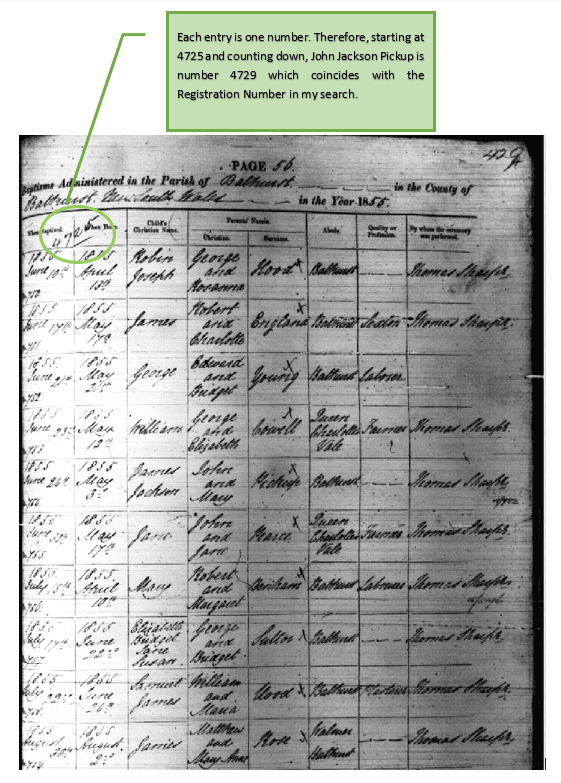 Each entry is one number. Therefore, starting at
4725 and counting down, John Jackson Pickup is
number 4729 which coincides with the
Registration Number in my search.
PAGE 56.
Baptisms Administered in the Parish of Bathurst in the County of
Bathurst, New South Wales in the Year 1855.
When Baptized. When Born. Child's Christian Name. Parents' Names. Abode. Quality or Profession. By whom the ceremony was performed.
4725
Christian. Surname.
1855 June 10th 1855 April Robin Joseph George and Rosanna Hood Bathurst Thomas Sharpe.
1855 June 17th 1855 May James Robert and Charlotte England Bathurst Sexton Thomas Sharpe.
1855 June 1855 May George Edward and Bridget Young Bathurst Labourer
1855 June 1855 May 12th William George and Elizabeth Cowell Queen Charlottes Vale Farmer Thomas Sharpe.
1855 June 24th 1855 May 3rd James Jackson John and Mary Pickup Bathurst Thomas Sharpe.
1855 1855 May 17th Jane John and Jane Pearce Queen Charlottes Vale Farmer Thomas Sharpe.
1855 July 15th 1855 April 10th Mary Robert and Margaret Bathurst Labourer Thomas Sharpe.
1855 July 17th 1855 June 22nd Elizabeth Bridget Jane Susan George and Bridget Bathurst Thomas Sharpe.
1855 July 1855 June 26th Samuel James William and Maria Wood Bathurst Thomas Sharpe.
1855 August 1855 August James Matthew and Mary Anne Rose Bathurst Thomas Sharpe.